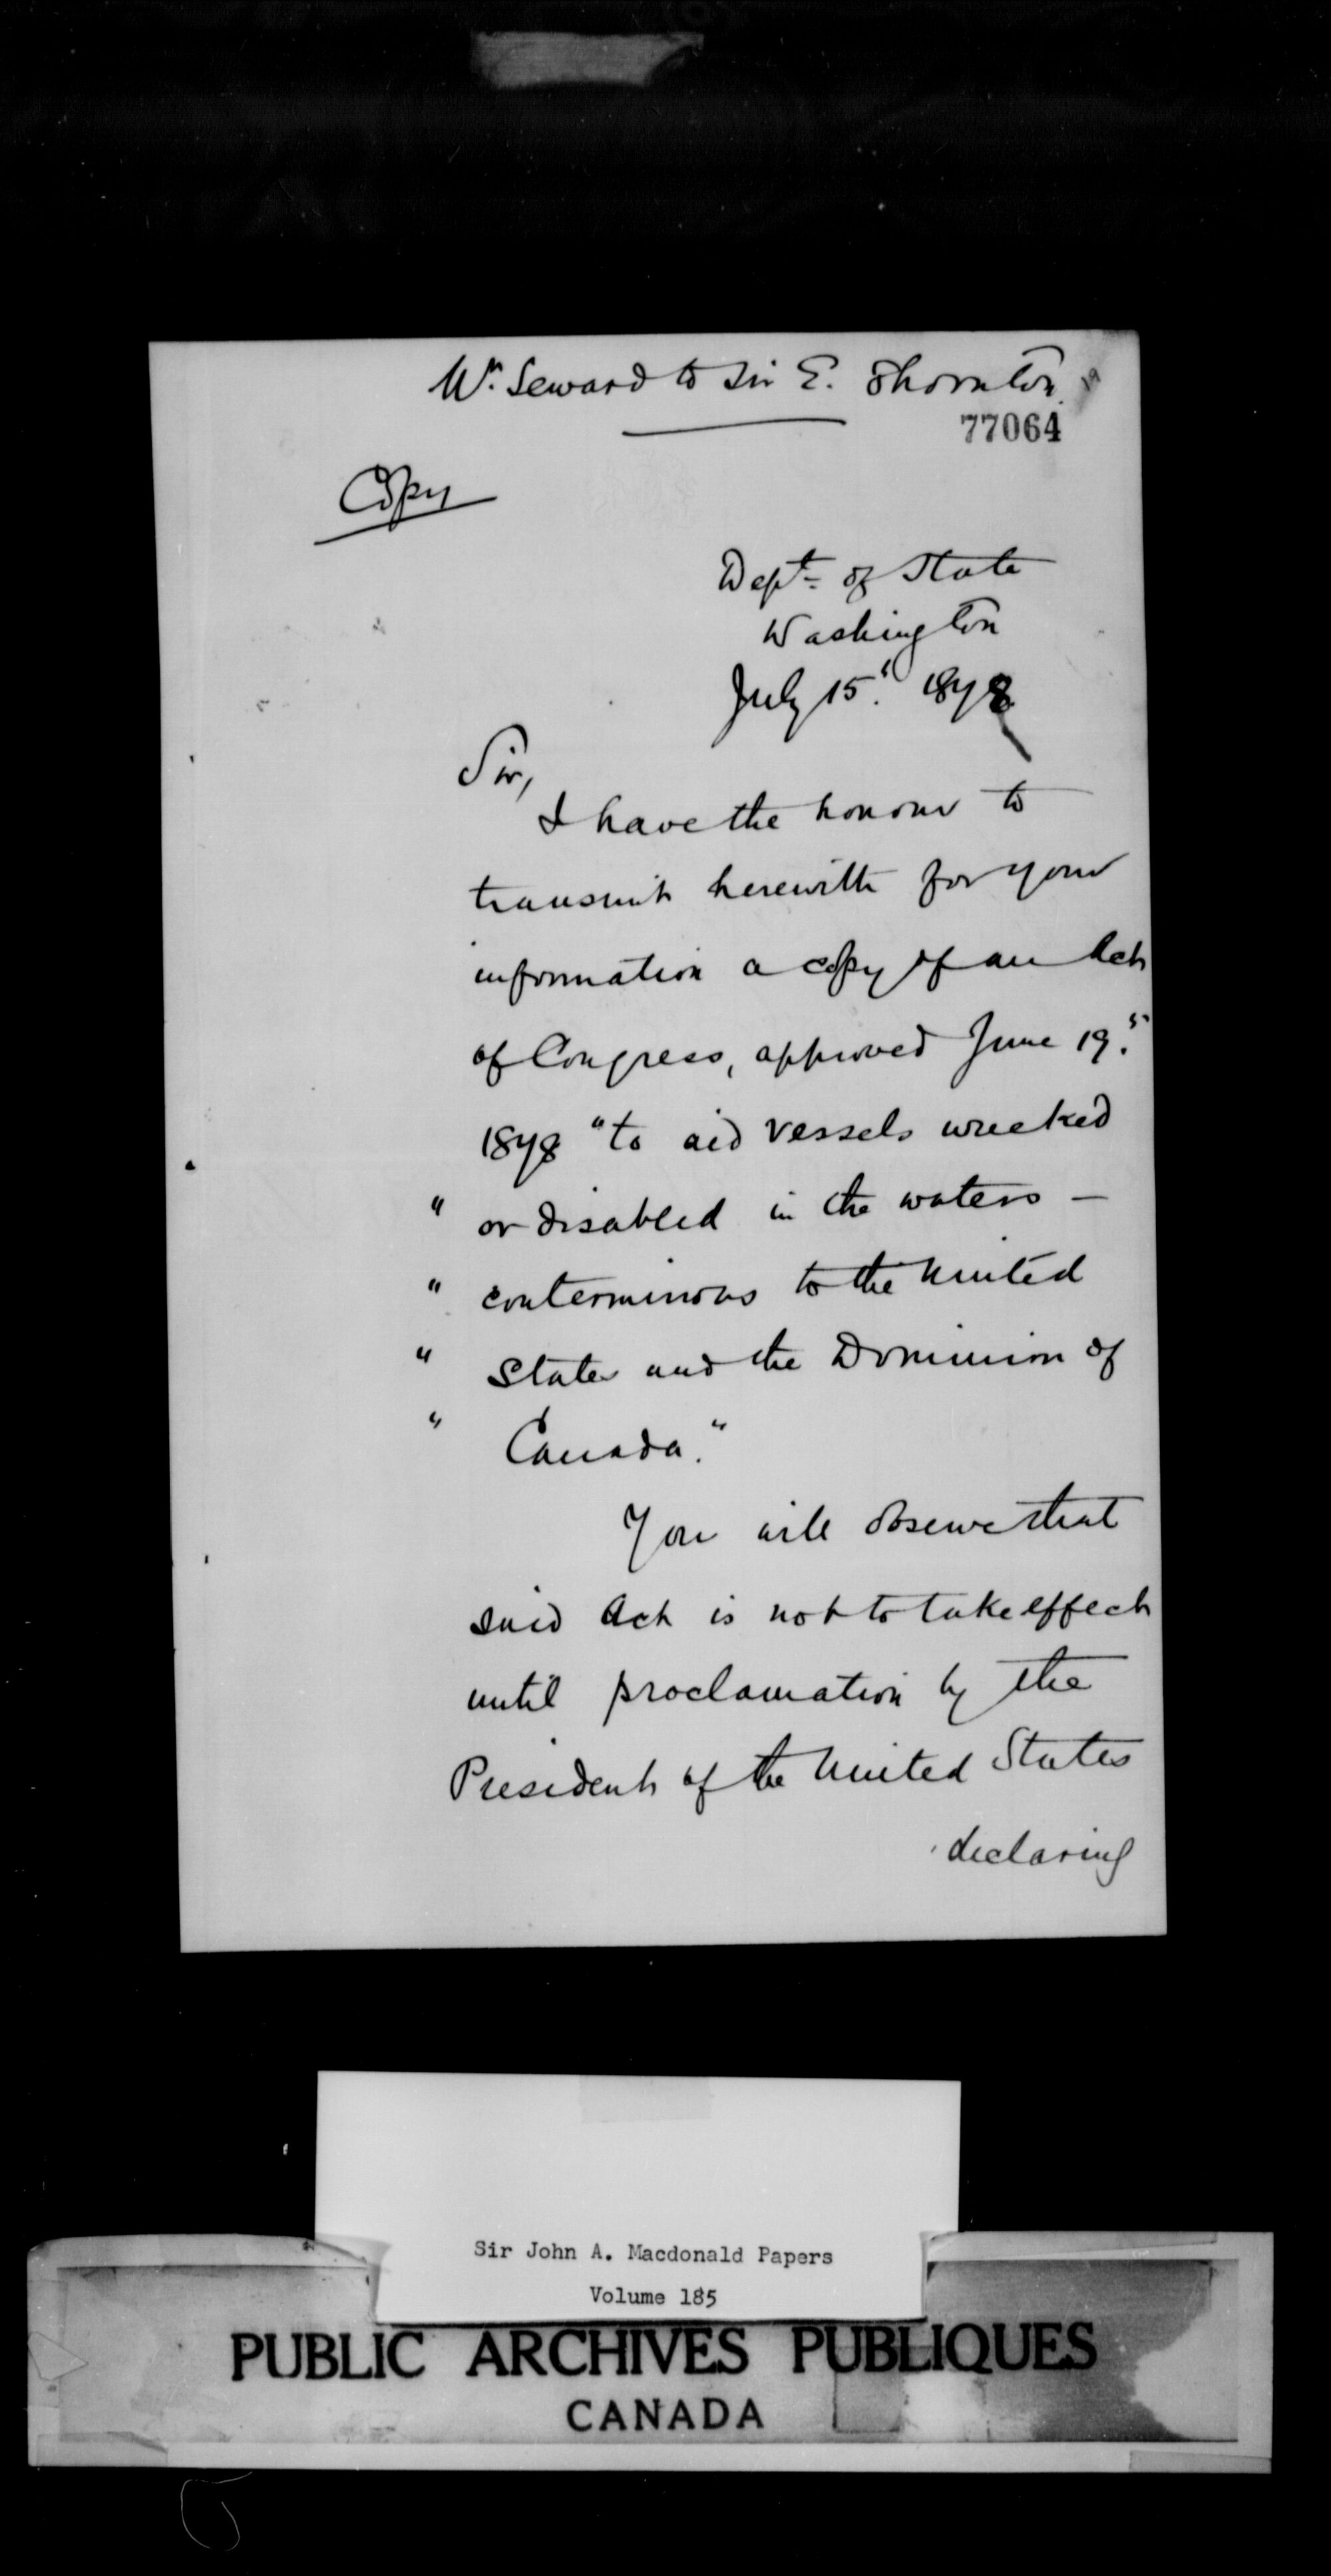 Mr. Seward to Sir E. Thornton
77064
Copy
Dept. of State
Washington
July 15. 1878
Sir,
I have the honour to
transmit herewith for your
information a copy of an Act
of Congress, approved June 19.
1878 "to aid vessels wrecked
" or disabled in the waters —
" conterminous to the United
" States and the Dominion of
" Canada."
You will observe that
said Act is not to take effect
until proclamation by the
President of the United States
declaring
Sir John A. Macdonald Papers
Volume 185
PUBLIC ARCHIVES PUBLIQUES
CANADA